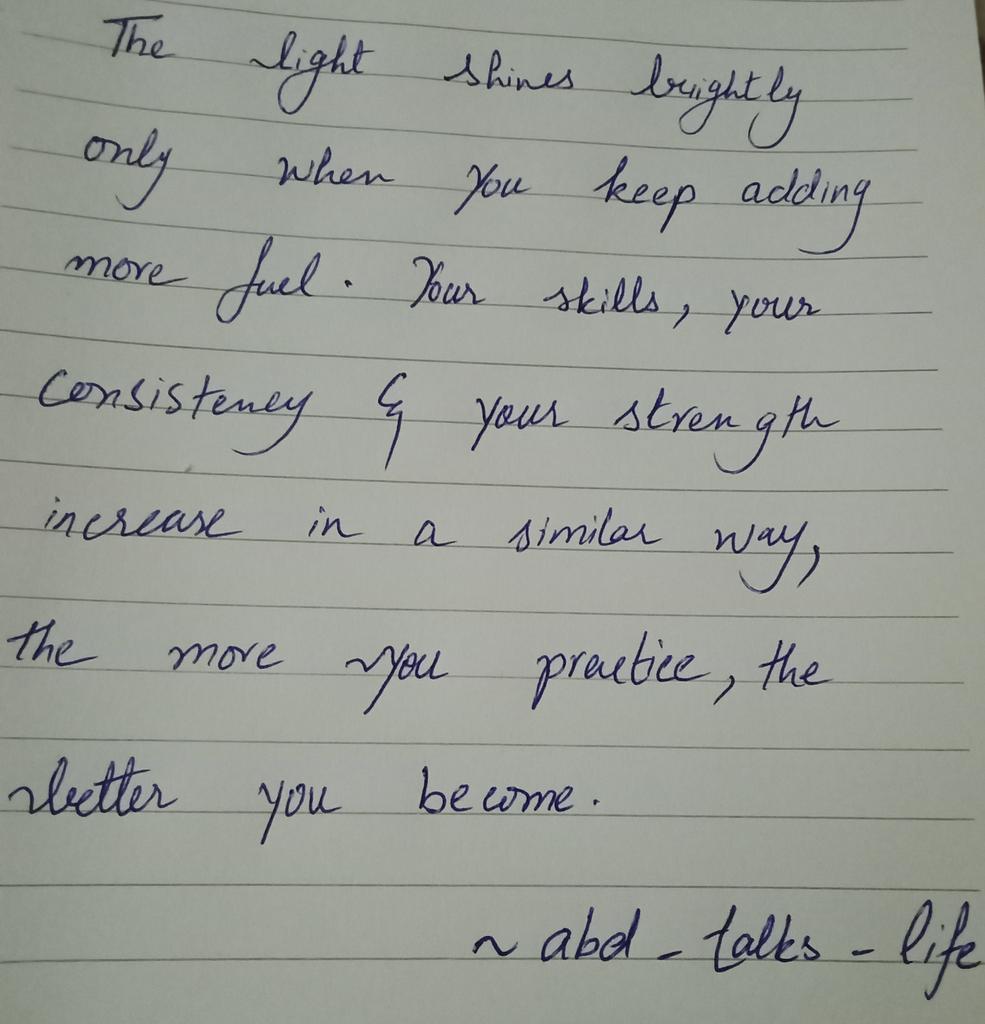 The light shines brightly
only when you keep adding
more fuel. Your skills, your
consistency & your strength
increase in a similar way,
the more you practice, the
better you become.
~ abd - talks - life